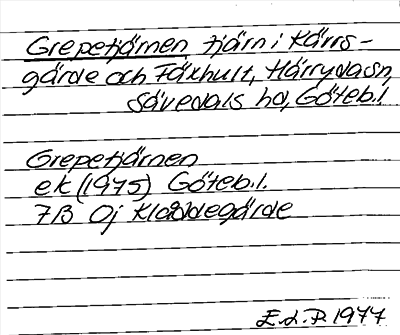 Grepetjärnen, tjärn i Kärrs-
gärde och Fäxhult, Härryda sn,
Sävedals hd, Göteb.l.
Grepetjärnen
ek (1975) Göteb.l.
7B 0j Kladdegärde
E.L.P. 1977